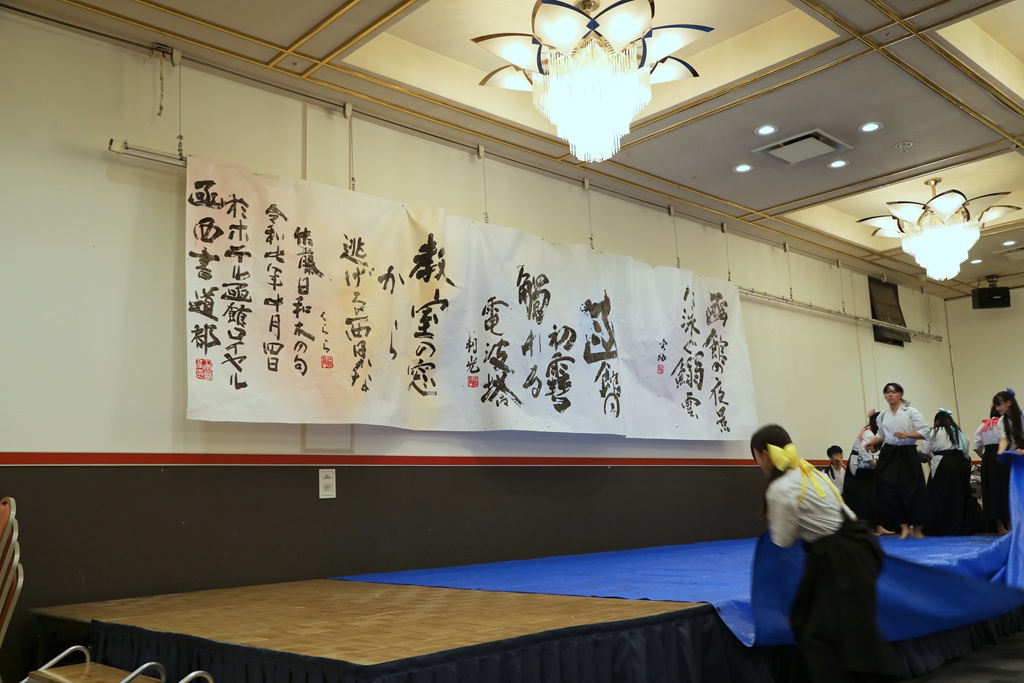 函館の夜景
に泳ぐ鰯雲
函館山
初雪
触れる
電波塔
教室の窓
から
逃げる西日かな
くらら
佐藤日和太の句
令和七年十月四日
於ホテル函館ロイヤル
函西書道部